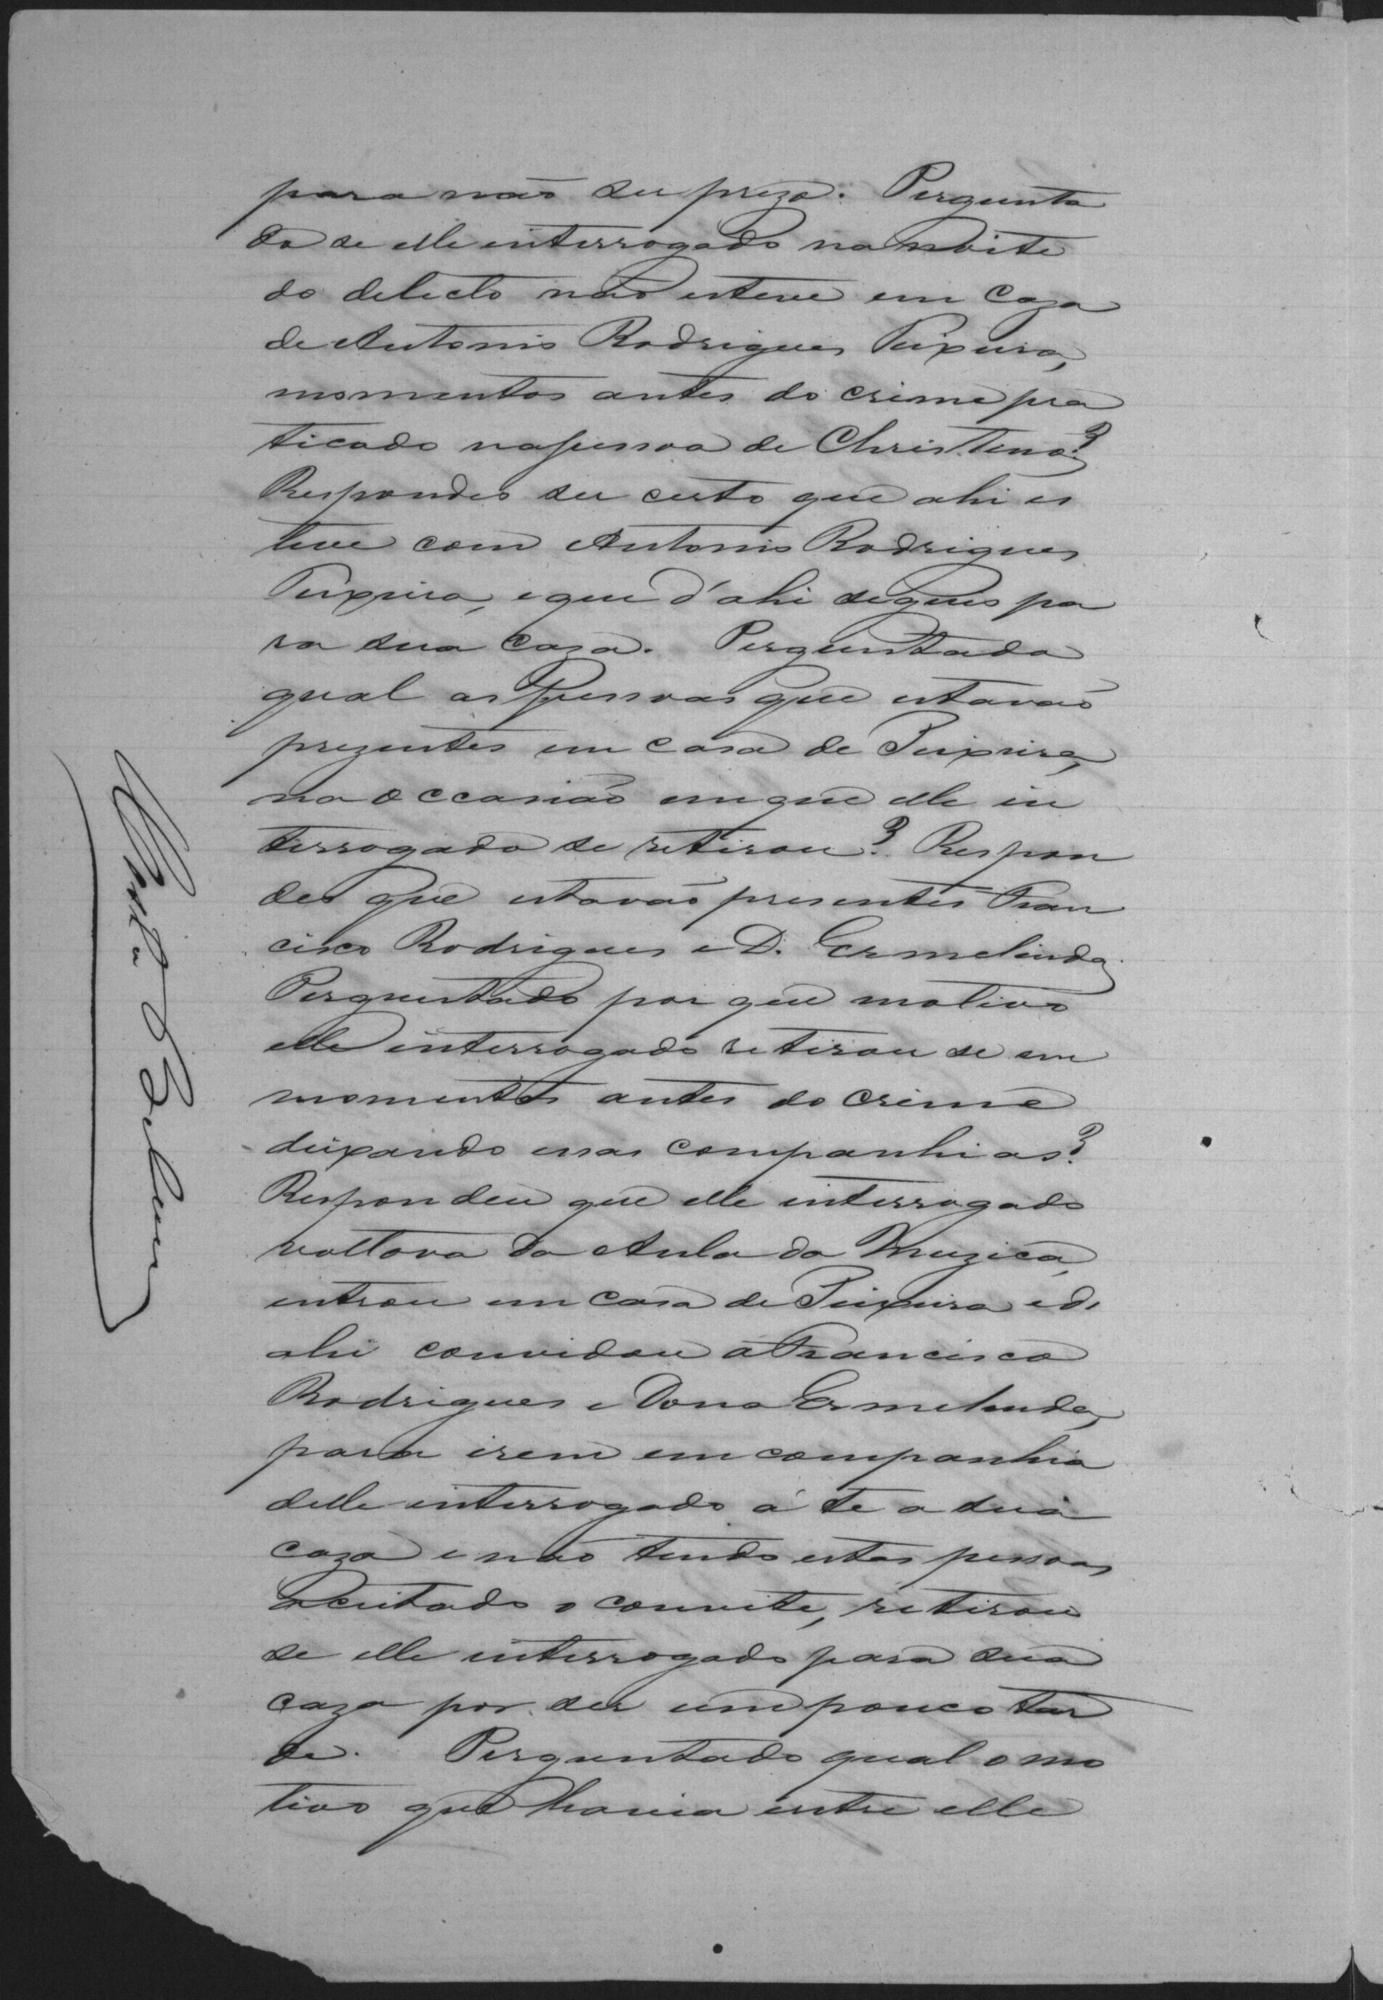 para não ser prezo. Pergunta
do se elle interrogado na noite
do delicto não esteve em caza
de Antonio Rodrigues Teixeira,
momentos antes do crime pra
ticado na pessoa de Christino?
Respondeo ser certo que ahi es
teve com Antonio Rodrigues
Teixeira, e que d'ahi seguio pa
ra sua caza. Perguntado
qual as pessoas que estavão
prezentes em casa de Teixeira,
na occasião em que elle in
terrogado se retirou? Respon
deo que estavão presentes Fran
cisco Rodrigues e D. Ermelinda.
Perguntado por que motivo
elle interrogado retirou se em
momentos antes do crime
deixando essas companhias?
Respondeu que elle interrogado
voltava da Aula da Muzica,
entrou em casa de Teixeira e d'
ahi convidou a Francisco
Rodrigues e Dona Ermelinda,
para irem em companhia
delle interrogado á te a sua
caza e não tendo estas pessoas
acceitado o convite, retirou
se elle interrogado para sua
caza por ser um pouco tar
de. Perguntado qual o mo
tivo que havia entre elle
Costa